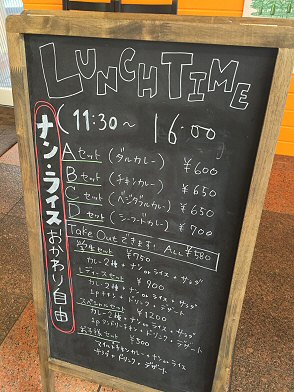 LUNCH TIME
(11:30~ 16:00
ナン・ライスおかわり自由
Aセット (ダルカレー) ¥600
Bセット (チキンカレー) ¥650
Cセット (ベジタブルカレー) ¥650
Dセット (シーフードカレー) ¥700
Take Outできます! ALL ¥580
学生セット ¥750
カレー2種+ナンorライス+サラダ
レディースセット ¥900
カレー2種+ナンorライス+サラダ
1pチキン+ドリンク・デザート
スペシャルセット ¥1200
カレー2種+ナンorライス+サラダ
タンドリーチキン+ドリンク・デザート
お子様セット ¥500
マイルドチキンカレー+ナンorライス
+ドリンク・デザート